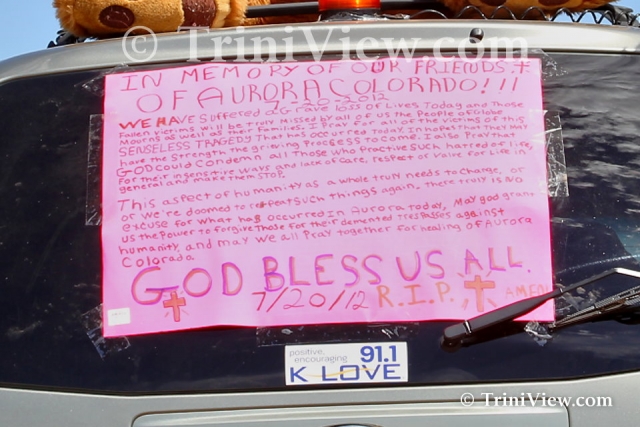 © TriniView.com
IN MEMORY OF OUR FRIENDS
OF AURORA COLORADO!!!
7-20-2012
WE HAVE Suffered a Grave loss of Lives Today and Those
Fallen victims will be truly Missed by all of us the People of Globe
Mourns as well as their Families. I Pray for all of the victims of this
SENSELESS TRAGEDY That has occurred Today, In hopes that They May
have the Strength the grieving Progress to Come. I also Pray that
GOD could Condemn all Those who Practive such hatred of life,
For their insensitive Ways and lack of Care, respect or Value for Life in
general and make them STOP.
This aspect of humanity as a whole truly needs to change, or
or We're doomed to repeat such things again, there truly is No
excuse for what has occurred in Aurora today, May god grant
us the Power to forgive Those for their demented trespasses against
humanity, and may we all Pray together for healing of Aurora
Colorado.
GOD BLESS US ALL.
7/20/12 R.I.P. AMEN
positive, encouraging 91.1
K LOVE
© TriniView.com